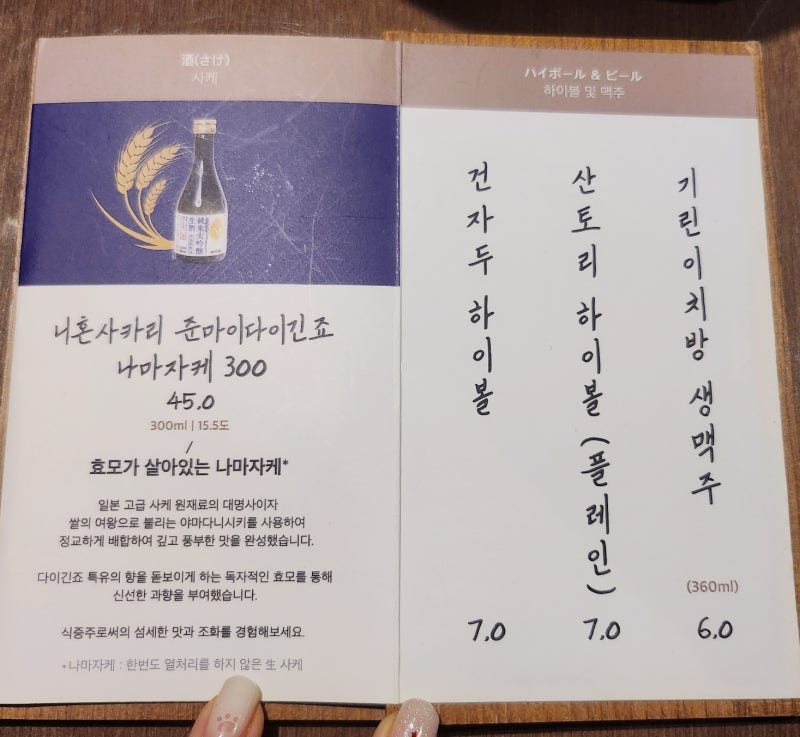 酒(さけ)
사케
純米大吟醸
生酒
니혼사카리 준마이다이긴죠
나마자케 300
45.0
300ml | 15.5도
/
효모가 살아있는 나마자케*
일본 고급 사케 원재료의 대명사이자
쌀의 여왕으로 불리는 야마다니시키를 사용하여
정교하게 배합하여 깊고 풍부한 맛을 완성했습니다.
다이긴죠 특유의 향을 돋보이게 하는 독자적인 효모를 통해
신선한 과향을 부여했습니다.
식중주로써의 섬세한 맛과 조화를 경험해보세요.
*나마자케 : 한번도 열처리를 하지 않은 生 사케
ハイボール & ビール
하이볼 및 맥주
건자두 하이볼
7.0
산토리 하이볼 (플레인)
7.0
기린이치방 생맥주
(360ml)
6.0